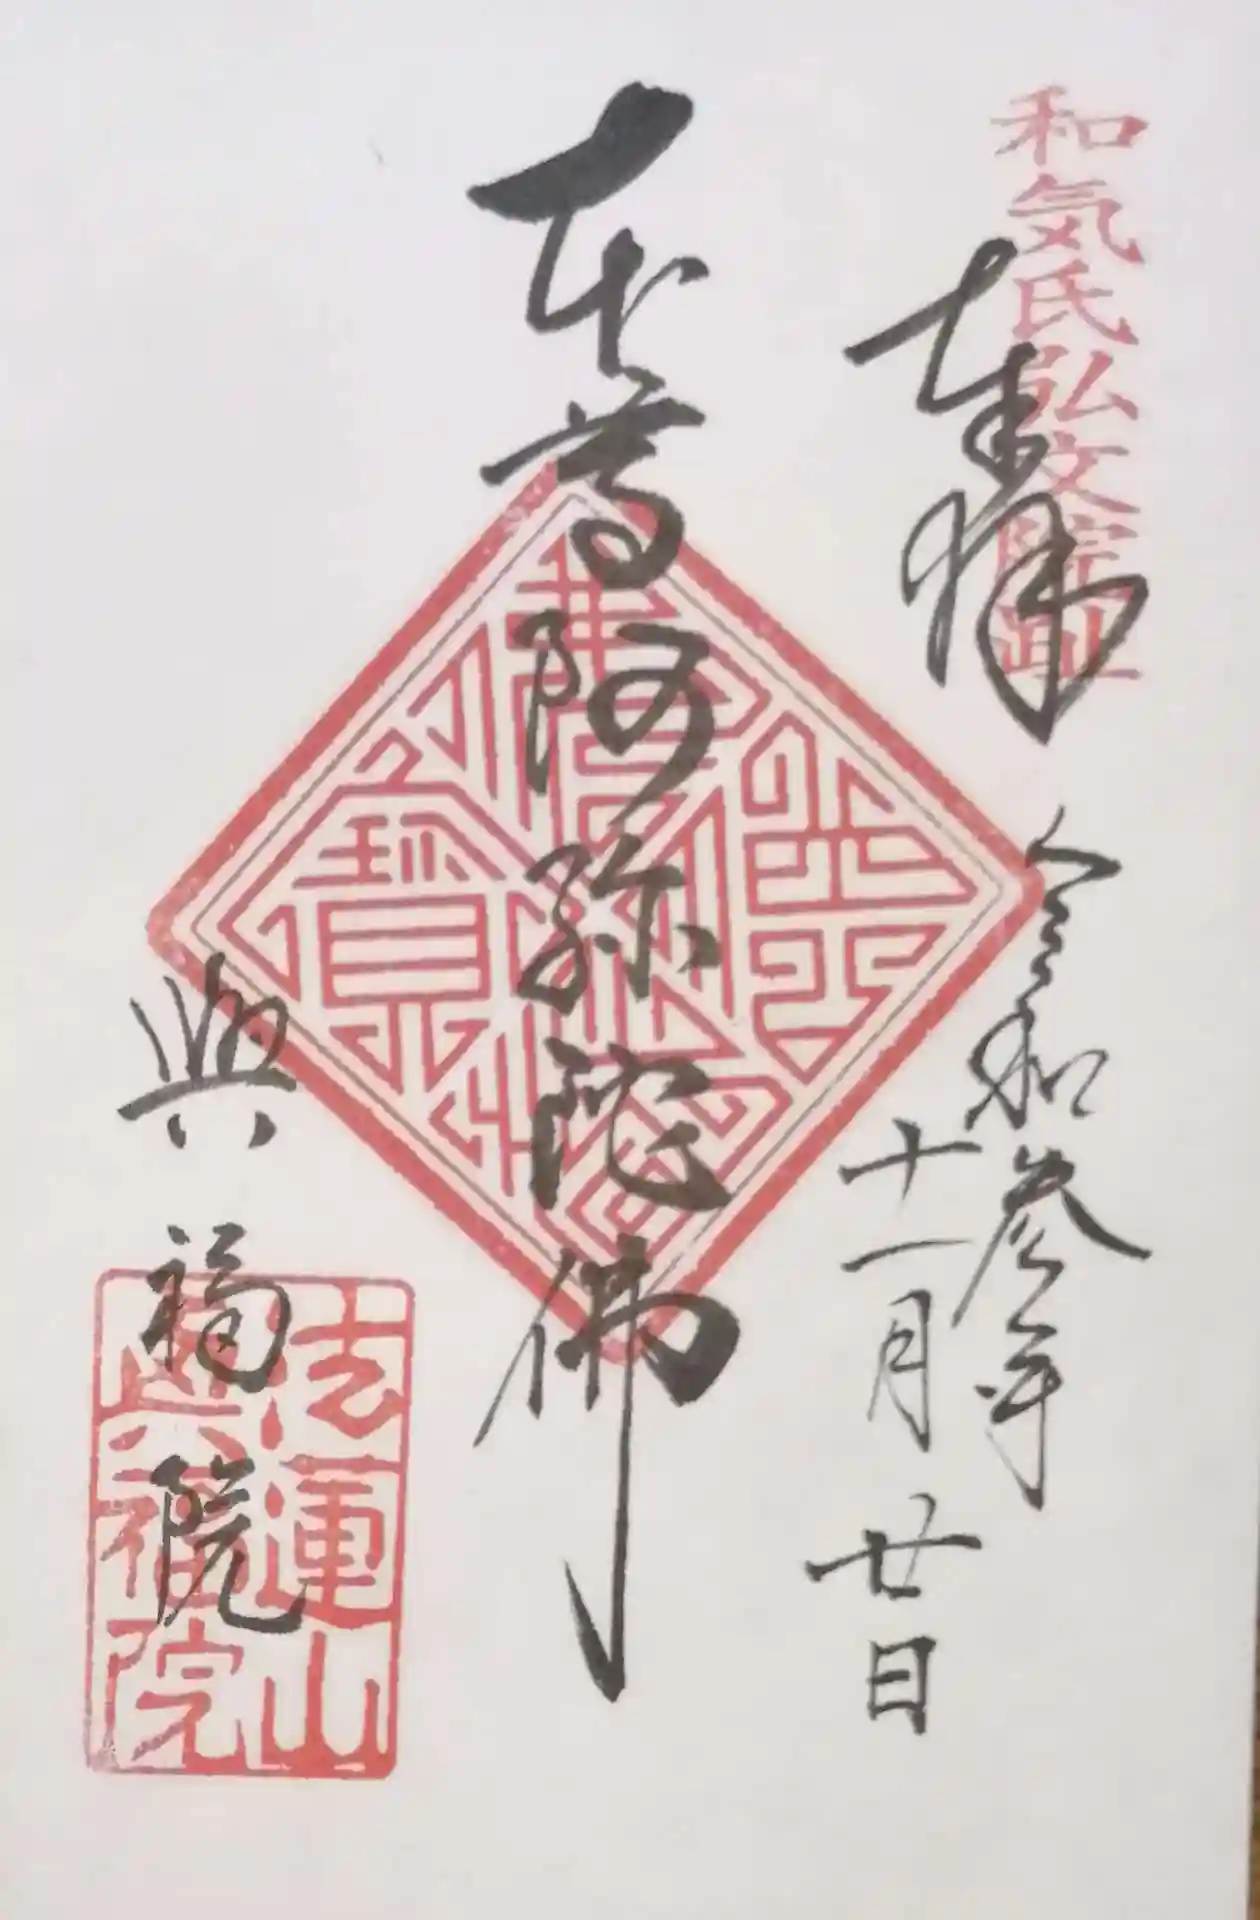 和気氏弘文院址
奉拝
令和参年
十一月廿日
本尊阿弥陀佛
佛法僧寳
興福院
法蓮山
興福院